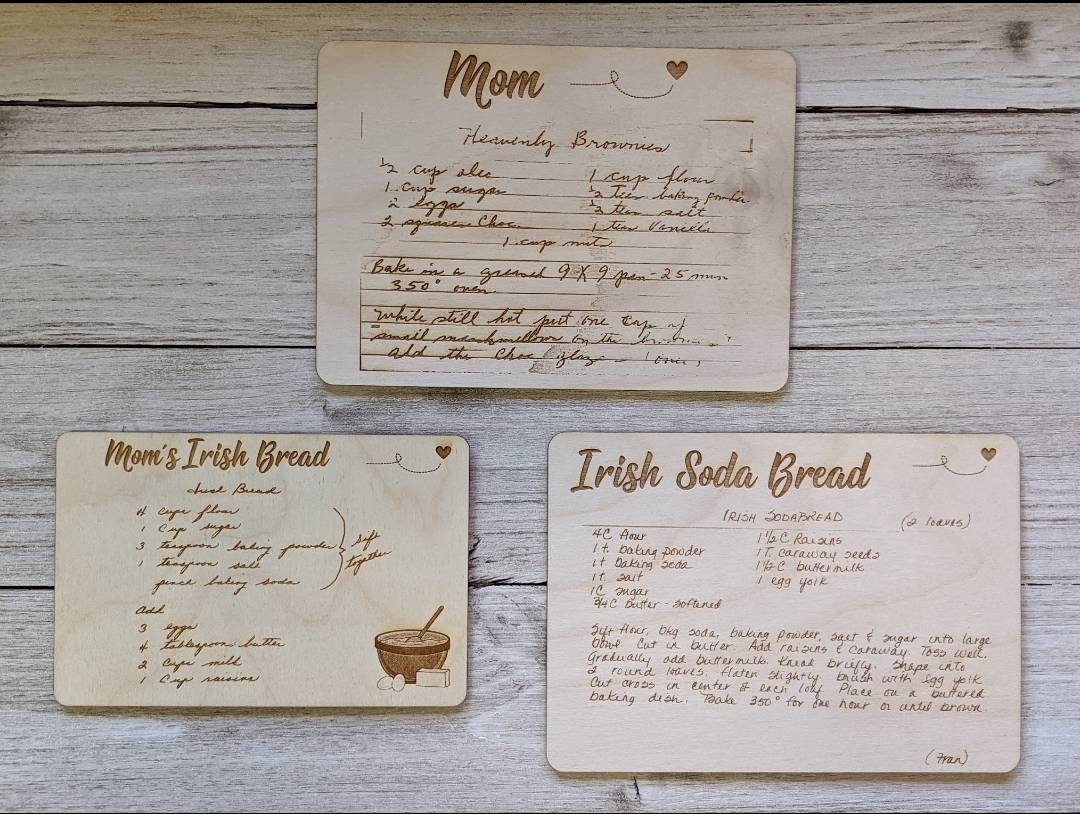 Mom
Heavenly Brownies
1/2 cup oleo
1 cup sugar
2 eggs
2 squares Choc.
1 cup flour
1/2 teas baking powder
1/2 teas salt
1 teas Vanilla
1 cup nuts
Bake in a greased 9 X 9 pan - 25 min
350° oven.
While still hot put one cup of
small marshmellow on the
add the Choc glaze
Mom's Irish Bread
Irish Bread
4 cups flour
1 Cup sugar
3 teaspoon baking powder
1 teaspoon salt
pinch baking soda
Sift
together
Add
3 eggs
4 tablespoon butter
2 Cups milk
1 Cup raisins
Irish Soda Bread
IRISH SODABREAD (2 loaves)
4C flour
1 t. baking powder
1 t baking soda
1 t. salt
1C sugar
3/4C butter - softened
1 1/2 C Raisins
1 T. caraway seeds
1 1/2 C buttermilk
1 egg yolk
Sift flour, bkg soda, baking powder, salt & sugar into large
bowl. Cut in butter. Add raisins & caraway. Toss well.
Gradually add buttermilk. Knead briefly. Shape into
2 round loaves. flaten slightly. brush with egg yolk
Cut cross in center of each loaf. Place on a buttered
baking dish. Bake 350° for one hour or until brown.
(Fran)